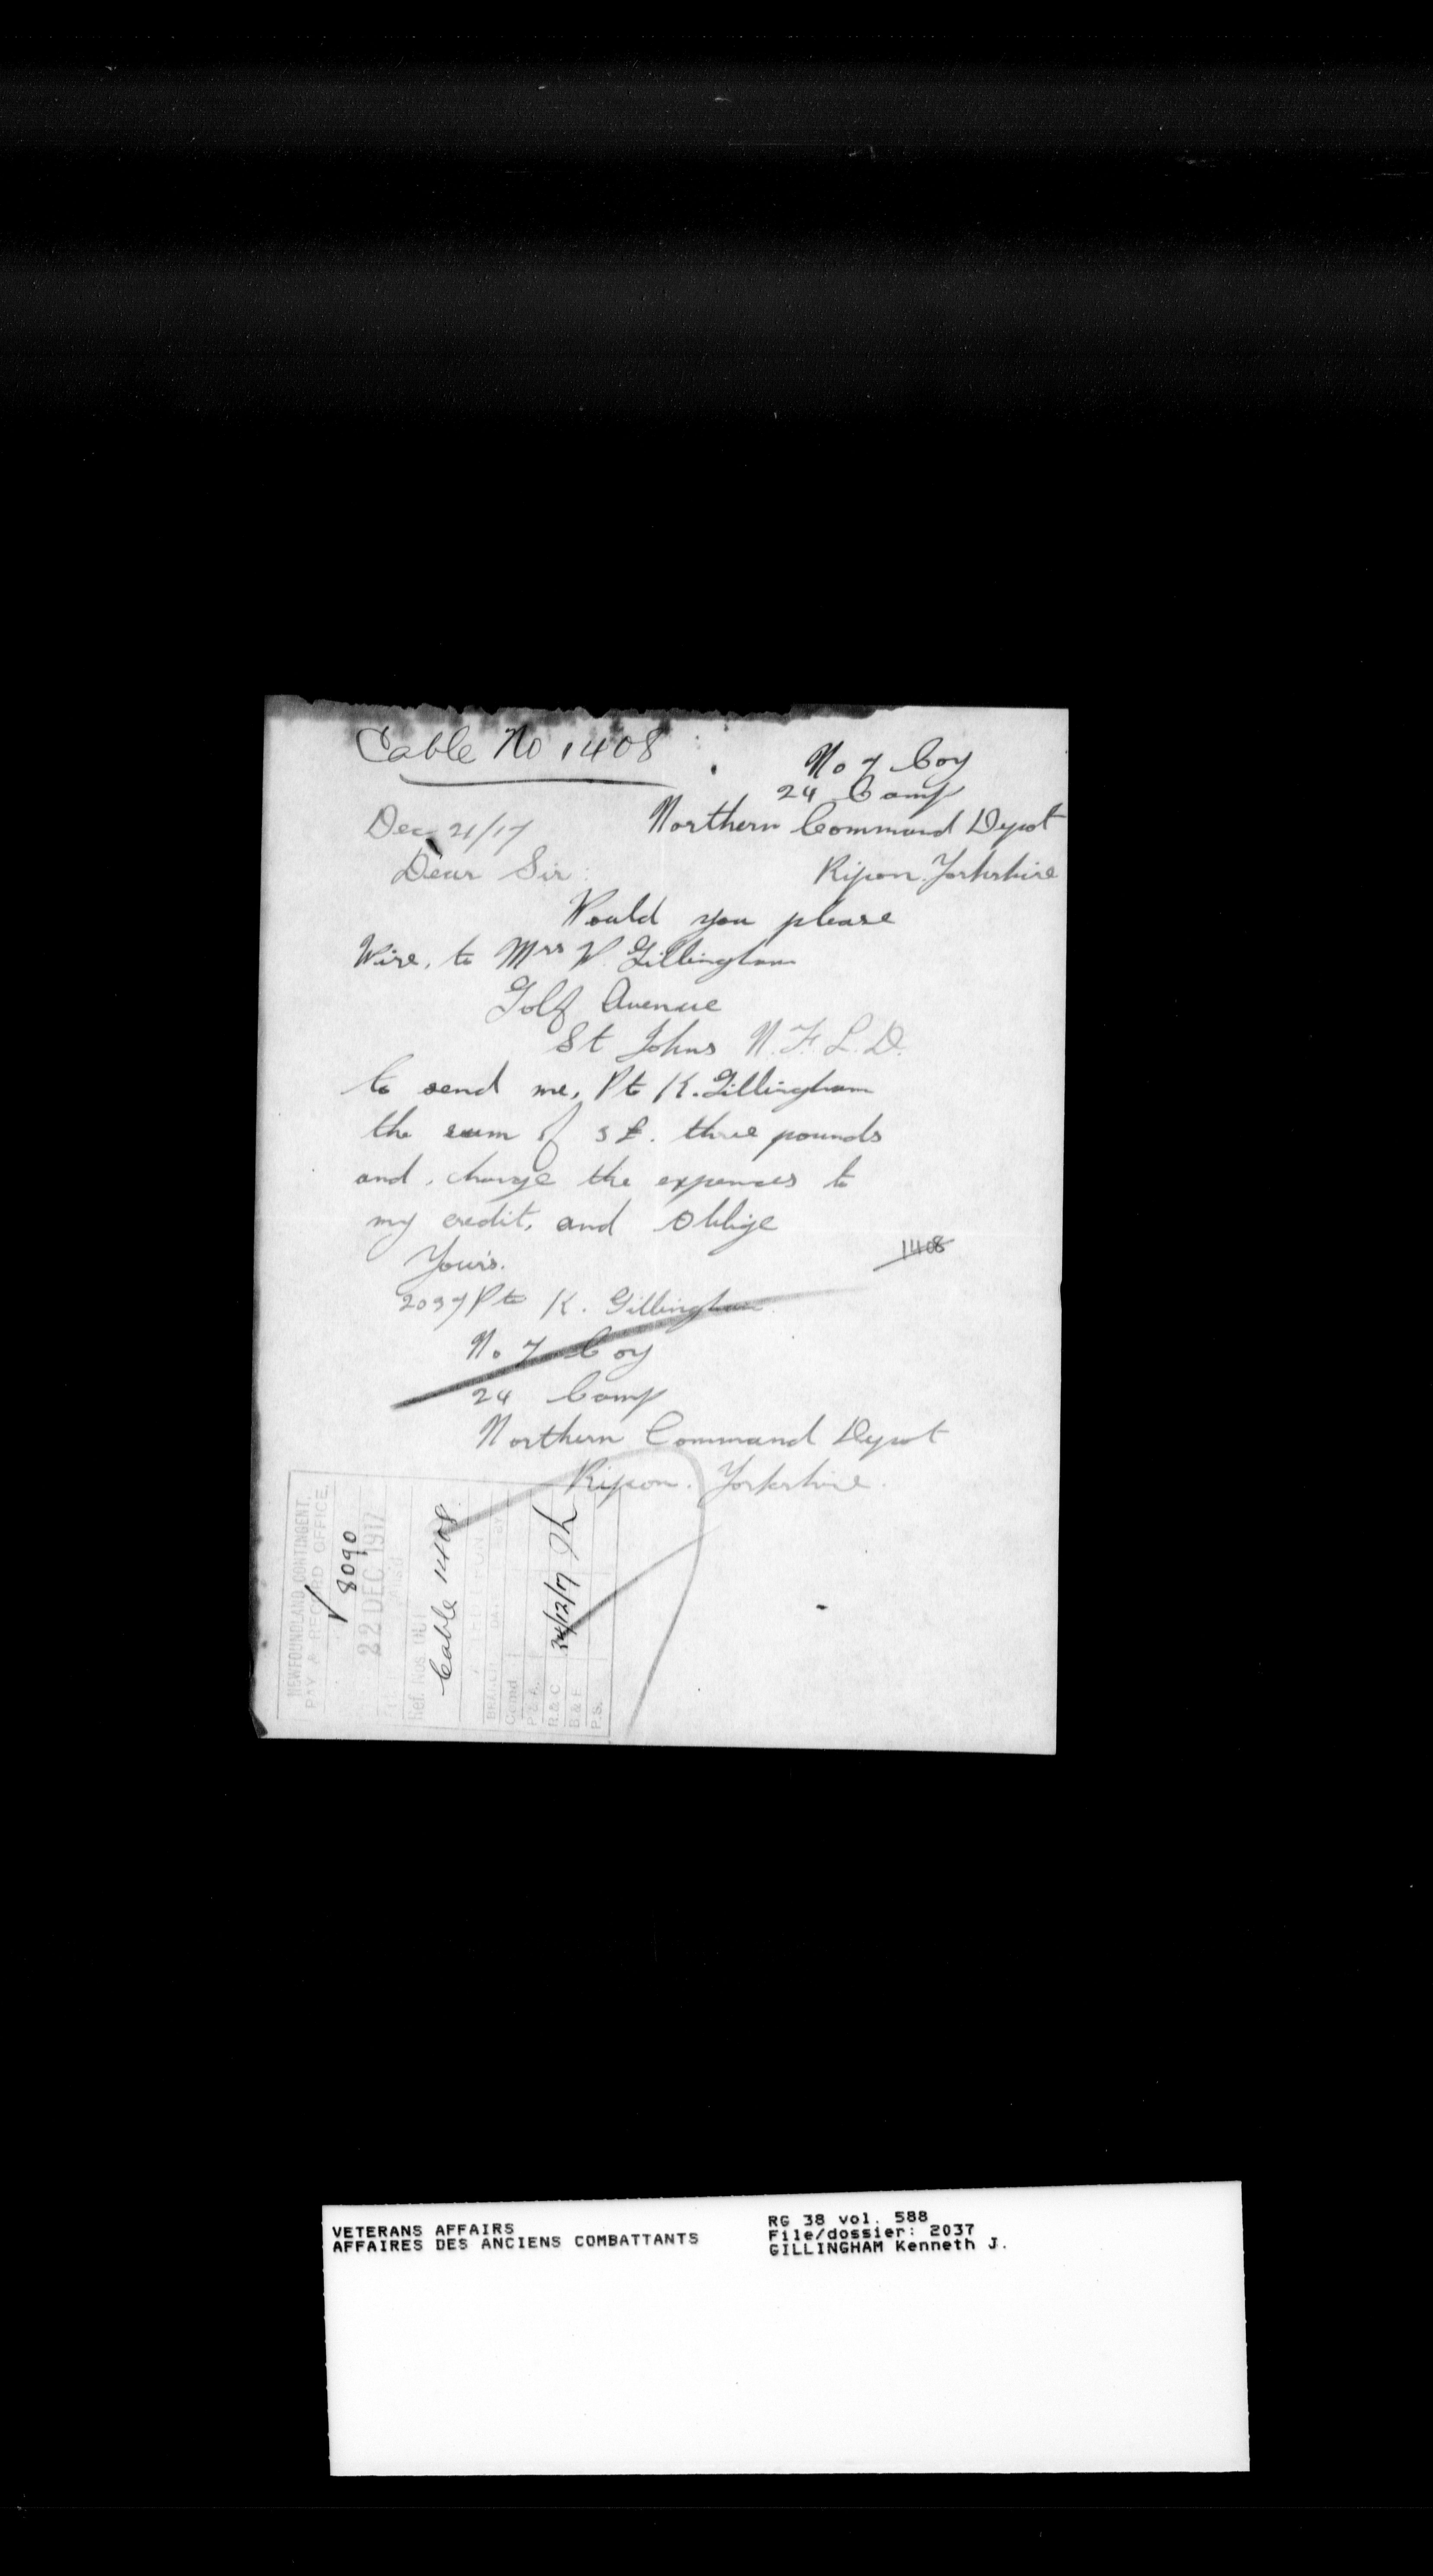 Cable No 1408
No 7 Coy
24 Camp
Northern Command Depot
Ripon. Yorkshire
Dec 21/17
Dear Sir:
Would you please
Wire, to Mrs W. Gillingham
Golf Avenue
St Johns N.F.L.D.
to send me, Pte K. Gillingham
the sum of 3 £. three pounds
and, charge the expences to
my credit, and Oblige
Your's.
1408
2037 Pte K. Gillingham
No 7 Coy
24 Camp
Northern Command Depot
Ripon. Yorkshire.
NEWFOUNDLAND CONTINGENT.
PAY & RECORD OFFICE.
8090
22 DEC 1917
Ref. Nos. OUT
Cable 1408
BRANCH DATE BY
Comd
P & A.
R. & C. 24/12/17
B. & F.
P.S.
VETERANS AFFAIRS
AFFAIRES DES ANCIENS COMBATTANTS
RG 38 vol. 588
File/dossier: 2037
GILLINGHAM Kenneth J.